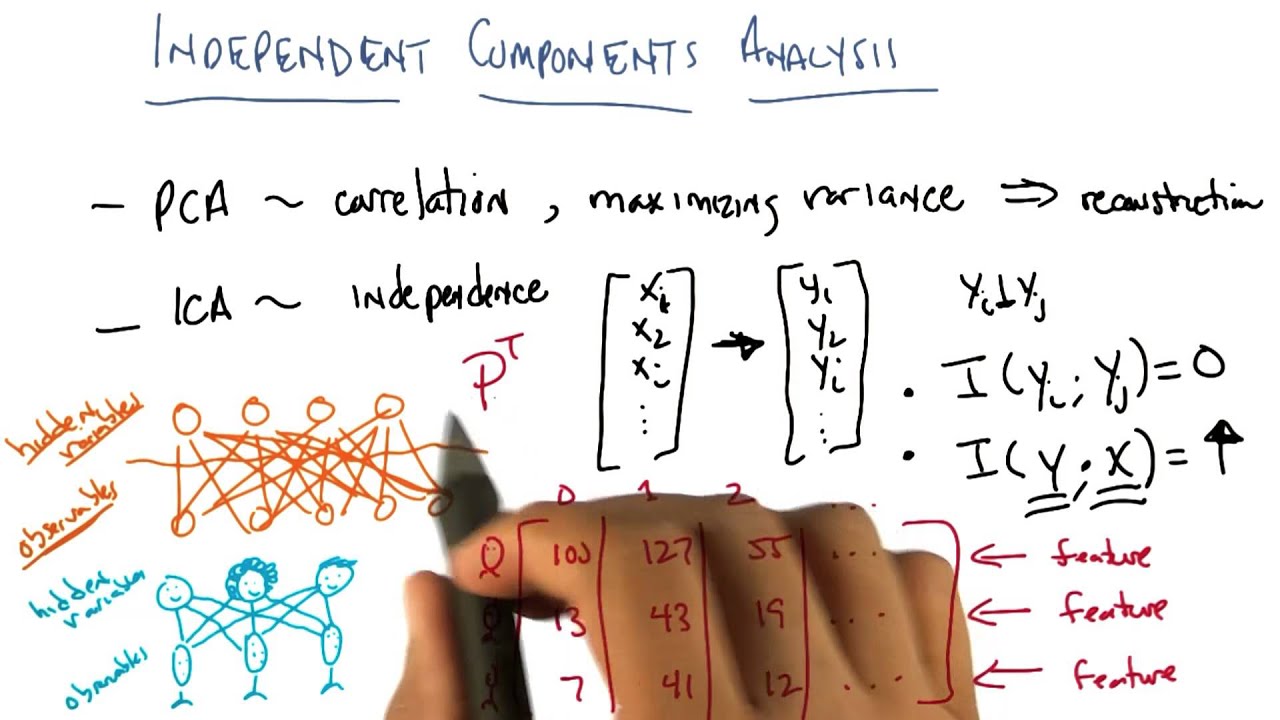 INDEPENDENT COMPONENTS ANALYSIS
– PCA ~ correlation, maximizing variance ⇒ reconstruction
– ICA ~ independence
P^T
X₁
X₂
Xᵢ
⋮
→
Y₁
Y₂
Yᵢ
⋮
Yᵢ⊥Yⱼ
• I(Yᵢ; Yⱼ)=0
• I(Y; X)=↑
hidden variables
observables
hidden variables
observables
0 1 2 ...
103 127 55 ... ← feature
13 43 19 ... ← feature
7 41 12 ... ← feature